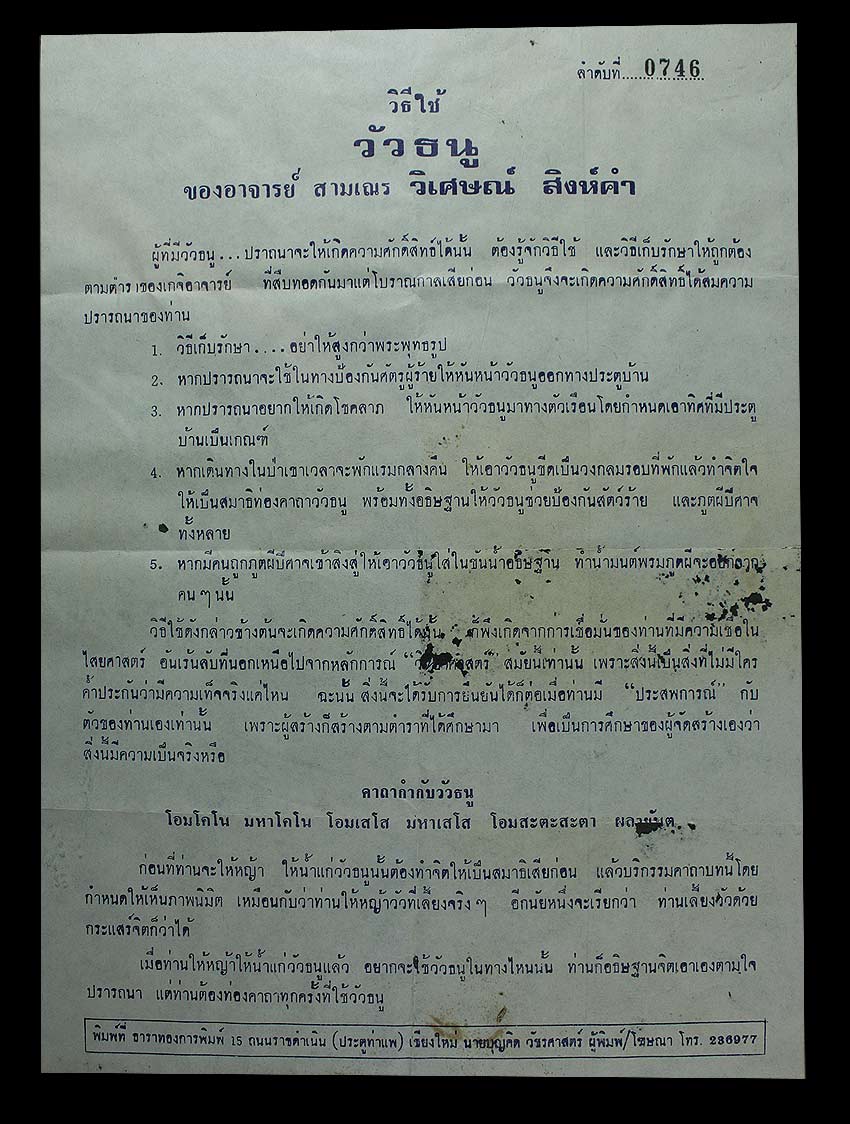 ลำดับที่......0746......
วิธีใช้
วัวธนู
ของอาจารย์ สามเณร วิเศษณ์ สิงห์คำ
ผู้ที่มีวัวธนู...ปราถนาจะให้เกิดความศักดิ์สิทธิ์ได้นั้น ต้องรู้จักวิธีใช้ และวิธีเก็บรักษาให้ถูกต้อง
ตามตำราของเกจิอาจารย์ ที่สืบทอดกันมาแต่โบราณกาลเสียก่อน วัวธนูจึงจะเกิดความศักดิ์สิทธิ์ได้สมความ
ปรารถนาของท่าน
1. วิธีเก็บรักษา....อย่าให้สูงกว่าพระพุทธรูป
2. หากปรารถนาจะใช้ในทางป้องกันศัตรูผู้ร้ายให้หันหน้าวัวธนูออกทางประตูบ้าน
3. หากปรารถนาอยากให้เกิดโชคลาภ ให้หันหน้าวัวธนูมาทางตัวเรือนโดยกำหนดเอาทิศที่มีประตู
บ้านเป็นเกณฑ์
4. หากเดินทางในป่าเขาเวลาจะพักแรมกลางคืน ให้เอาวัวธนูขีดเป็นวงกลมรอบที่พักแล้วทำจิตใจ
ให้เป็นสมาธิท่องคาถาวัวธนู พร้อมทั้งอธิษฐานให้วัวธนูช่วยป้องกันสัตว์ร้าย และภูตผีปีศาจ
ทั้งหลาย
5. หากมีคนถูกภูตผีปีศาจเข้าสิงสู่ให้เอาวัวธนูใส่ในขันน้ำอธิษฐาน ทำน้ำมนต์พรมภูตผีจะออกจาก
คน ๆ นั้น
วิธีใช้ดังกล่าวข้างต้นจะเกิดความศักดิ์สิทธิ์ได้นั้น ก็พึงเกิดจากการเชื่อมั่นของท่านที่มีความเชื่อใน
ไสยศาสตร์ อันเร้นลับที่นอกเหนือไปจากหลักการณ์ “วิทยาศาสตร์” สมัยนี้เท่านั้น เพราะสิ่งนี้เป็นสิ่งที่ไม่มีใคร
ค้ำประกันว่ามีความเท็จจริงแค่ไหน ฉะนั้น สิ่งนี้จะได้รับการยืนยันได้ก็ต่อเมื่อท่านมี “ประสพการณ์” กับ
ตัวของท่านเองเท่านั้น เพราะผู้สร้างก็สร้างตามตำราที่ได้ศึกษามา เพื่อเป็นการศึกษาของผู้จัดสร้างเองว่า
สิ่งนี้มีความเป็นจริงหรือ
คาถากำกับวัวธนู
โอมโคโน มหาโคโน โอมเสโส มหาเสโส โอมสะตะสะตา ผลายันต
ก่อนที่ท่านจะให้หญ้า ให้น้ำแก่วัวธนูนั้นต้องทำจิตให้เป็นสมาธิเสียก่อน แล้วบริกรรมคาถาบทนี้โดย
กำหนดให้เห็นภาพนิมิต เหมือนกับว่าท่านให้หญ้าวัวที่เลี้ยงจริง ๆ อีกนัยหนึ่งจะเรียกว่า ท่านเลี้ยงวัวด้วย
กระแสร์จิตก็ว่าได้
เมื่อท่านให้หญ้าให้น้ำแก่วัวธนูแล้ว อยากจะใช้วัวธนูในทางไหนนั้น ท่านก็อธิษฐานจิตเอาเองตามใจ
ปรารถนา แต่ท่านต้องท่องคาถาทุกครั้งที่ใช้วัวธนู
พิมพ์ที่ ธาราทองการพิมพ์ 15 ถนนราชดำเนิน (ประตูท่าแพ) เชียงใหม่ นายบุญคิด วัชรศาสตร์ ผู้พิมพ์/โฆษณา โทร. 236977